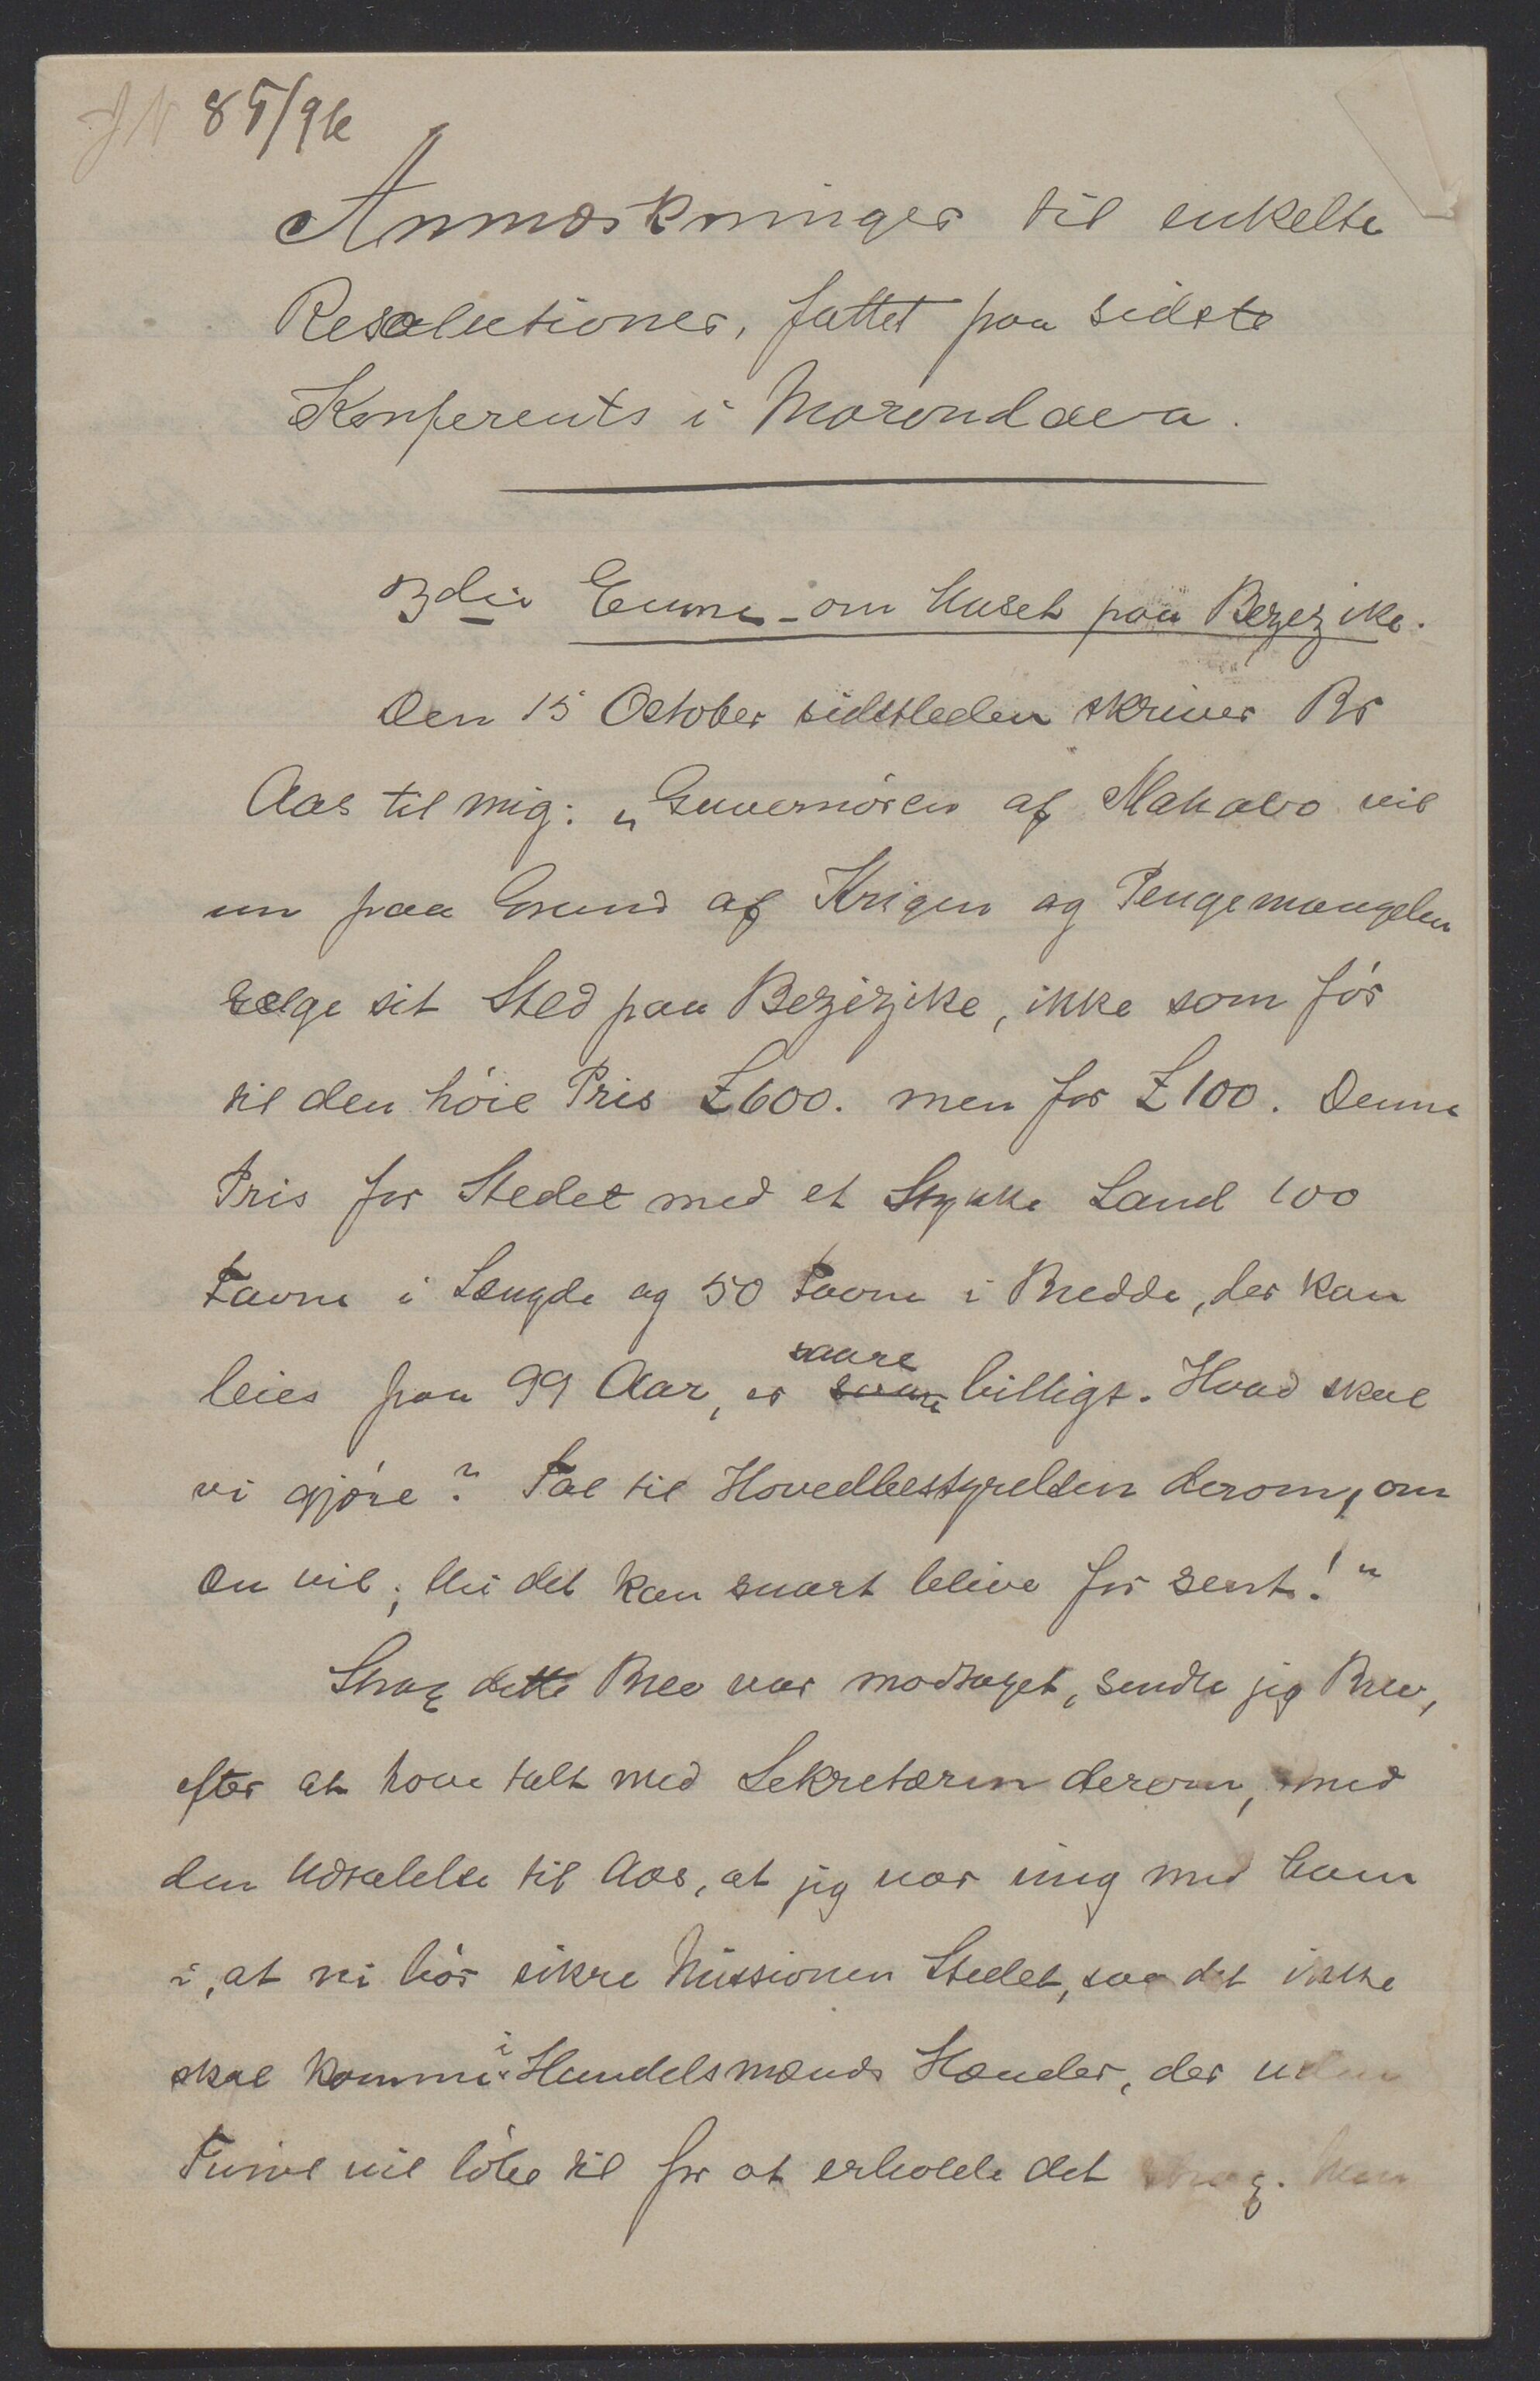 JN 85/96
Anmærkninger til enkelte
Resolutioner, fattet paa sidste
Konferents i Morondava.
3die Emne - om Huset paa Bezezike.
Den 15 October sidstleden skriver Br
Aas til mig: „Guvernören af Mahabo vil
nu paa Grund af Krigen og Pengemangelen
sælge sit Sted paa Bezizike, ikke som för
til den höie Pris £600. men for £100. Denne
Pris for Stedet med et Stykke Land 100
Favne i Længde og 50 Favne i Bredde, der kan
leies paa 99 Aar, er saare billigt. Hvad skal
vi gjöre? Tal til Hovedbestyrelsen derom, om
Du vil; thi det kan snart blive for sent!"
Strax dette Brev var modtaget, sendte jeg Brev,
efter at have talt med Sekretæren derom, med
den Udtalelse til Aas, at jeg var enig med ham
i, at vi bör sikre Missionen Stedet, saa det ikke
skal komme i Handelsmænds Hænder, der uden
Tvivl vil löbe til for at erholde det strax. Men